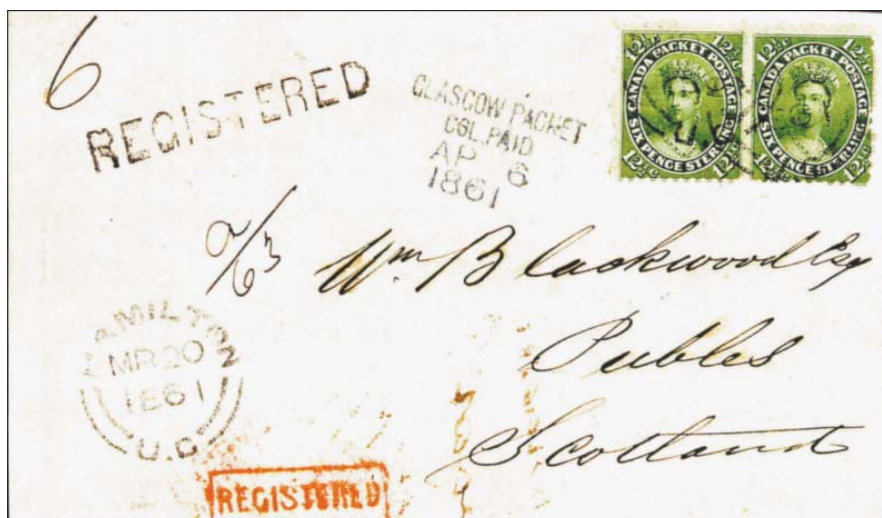 6
REGISTERED
GLASGOW PACKET
COL. PAID
AP 6
1861
12½c 12½c
CANADA PACKET POSTAGE
SIX PENCE STERLING
12½c 12½c
12½c 12½c
CANADA PACKET POSTAGE
SIX PENCE STERLING
12½c 12½c
Wm Blackwood Esq
Peebles
Scotland
HAMILTON
MR 20
1861
U.C
REGISTERED